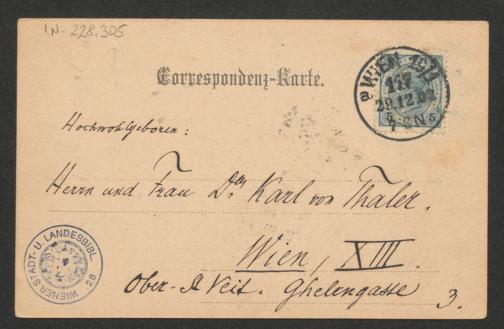 IN-228.305
Correspondenz-Karte.
WIEN 19/1
117
29.12.
5 5
7-8N
Hochwohlgeboren:
Herrn und Frau Dr Karl von Thaler.
Wien, XIII.
Ober-St Veit. Ghelengasse 3.
WIENER STADT- U. LANDESBIBL.